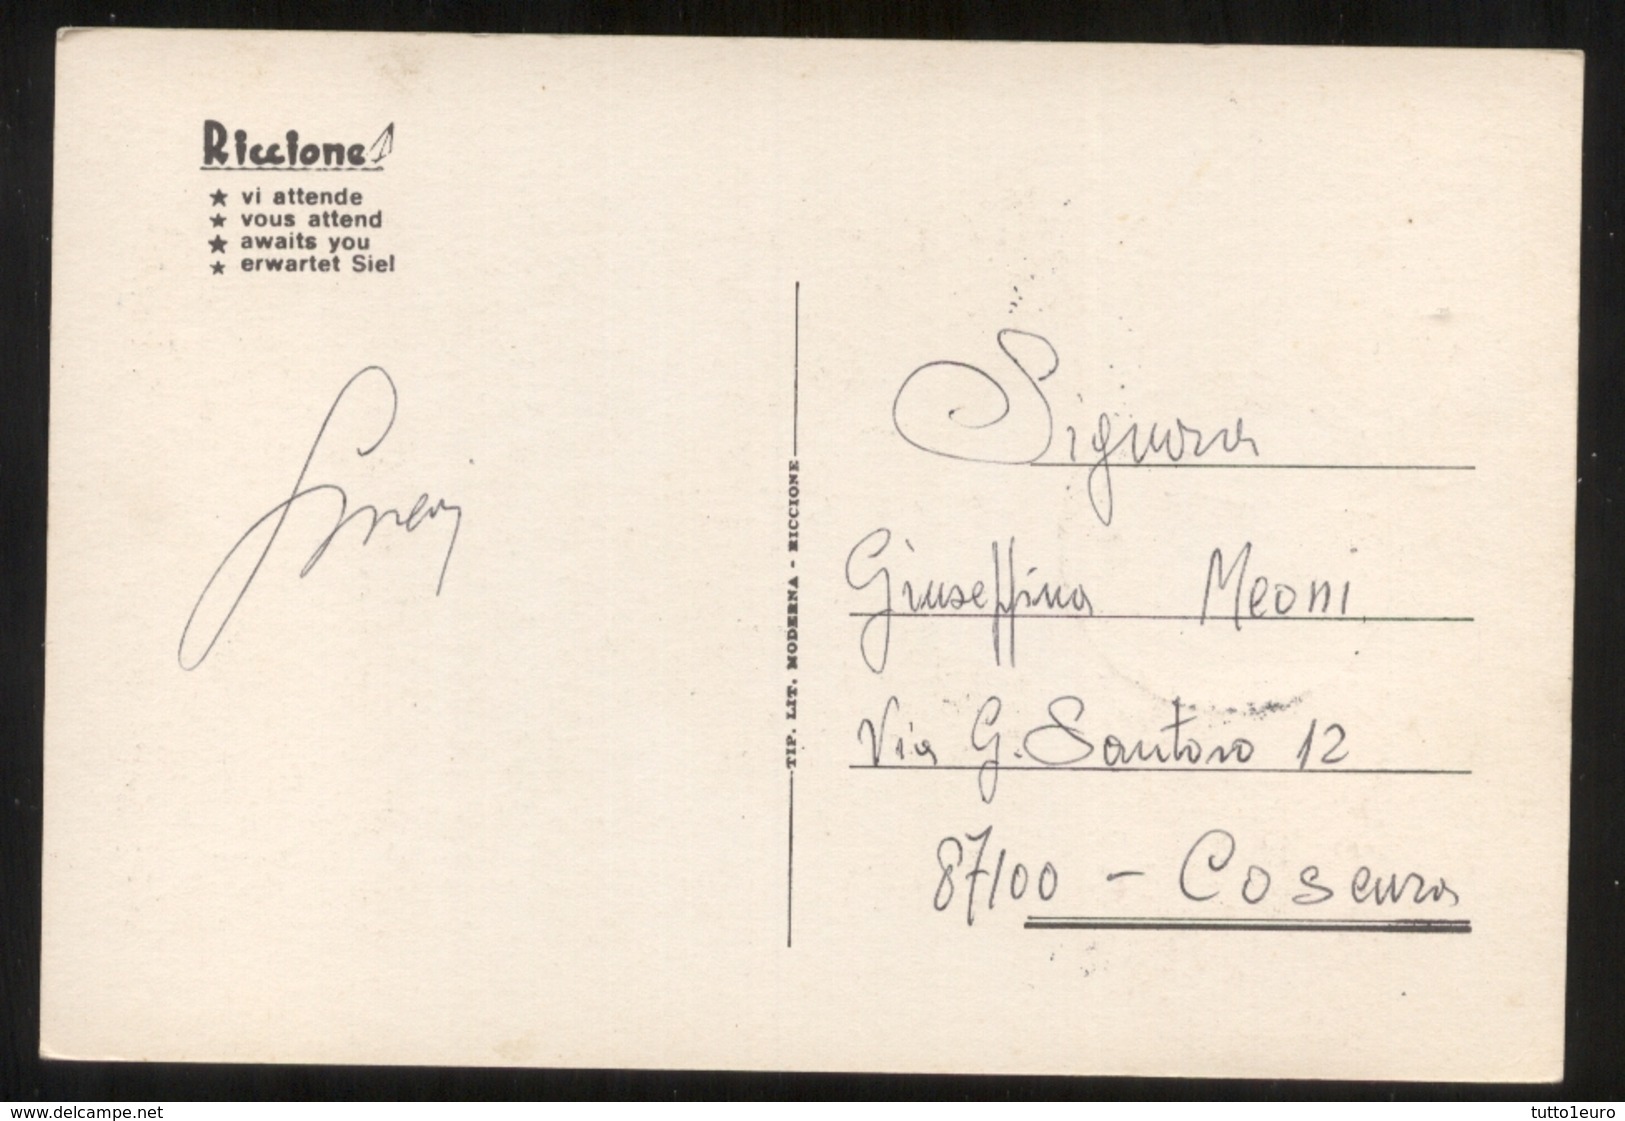 Riccione
★ vi attende
★ vous attend
★ awaits you
★ erwartet Sie!
TIP. LIT. MODERNA - RICCIONE
Signora
Giuseppina Meoni
Via G. Santoro 12
87100 - Cosenza
www.delcampe.net
tutto1euro